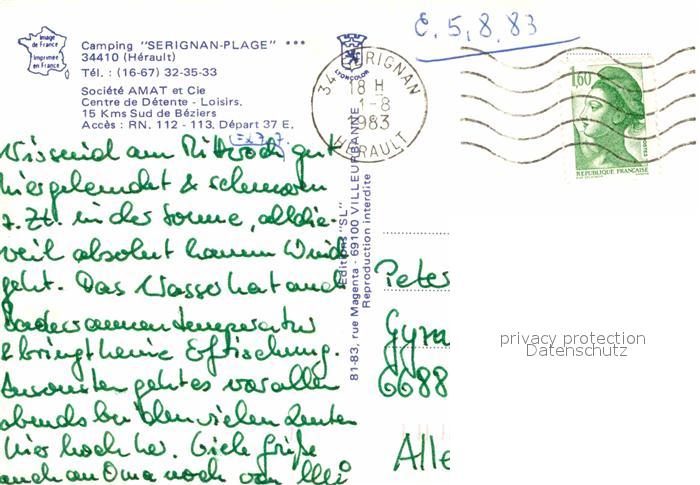 E. 5,8.83
Image de France
Imprimée en France
Camping "SERIGNAN-PLAGE" ***
34410 (Hérault)
Tél. : (16-67) 32-35-33
Société AMAT et Cie
Centre de Détente - Loisirs.
15 Kms Sud de Béziers
Accès : RN. 112 - 113. Départ 37 E.
LYONCOLOR
34 SERIGNAN
18 H
1-8
1983
HERAULT
1,60
POSTES
REPUBLIQUE FRANÇAISE
Wir sind am Mittwoch gut
hier gelandet & schmoren
z. Zt. in der Sonne, alldie-
weil absolut kaum Wind
geht. Das Wasser hat auch
Badewannentemperatur
& bringt keine Erfrischung.
Ansonsten geht es vor allem
abends bei den vielen Leuten
hier hoch her. Viele Grüße
auch an Oma noch von Ulli
Editions "SL"
81-83, rue Magenta - 69100 VILLEURBANNE
Reproduction interdite
Peter
Gyra
6688
Alle
privacy protection
Datenschutz